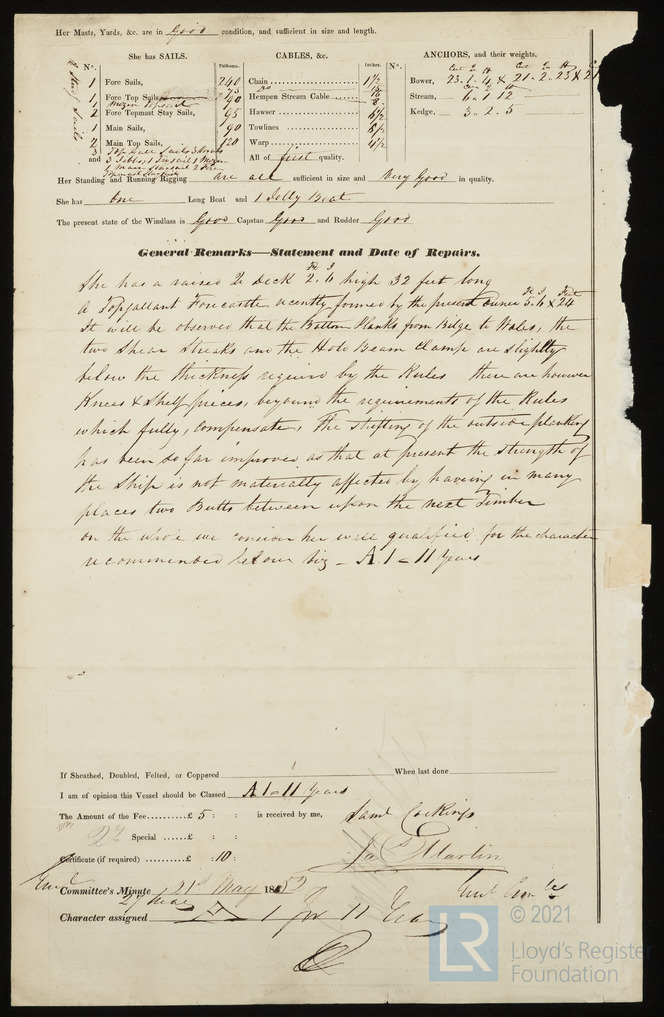 Her Masts, Yards, &c. are in Good condition, and sufficient in size and length.
She has SAILS. CABLES, &c. ANCHORS, and their weights.
N°. Fathoms. Inches. N°.
1 Fore Sails, 240 Chain 1 1/2 Bower, 23.1.4 & 21.2.23 &
1 Fore Top Sails, 90 Hempen Stream Cable Stream, 6.1.12
1 Mizen Topsail
2 Fore Topmast Stay Sails, 95 Hawser Kedge, 3.2.5
1 Main Sails, 90 Towlines
2 Main Top Sails, 120 Warp 4 1/2
and All of first quality.
Her Standing and Running Rigging are all sufficient in size and Very Good in quality.
She has One Long Boat and 1 Jolly Boat
The present state of the Windlass is Good Capstan Good and Rudder Good
General Remarks—Statement and Date of Repairs.
She has a raised Qr Deck 2.4 high 32 feet long
A Topgallant Forecastle recently formed by the present Owner 5.4 x 24
It will be observed that the Bottom Planks from Bilge to Wales, the
two Shear Streaks and the Hold Beam Clamp are slightly
below the thickness required by the Rules there are however
Knees & Shelf pieces, beyound the requirements of the Rules
which fully compensate, The shifting of the outside planking
has been so far improved as that at present the strength of
the Ship is not materially affected by having in many
places two Butts between upon the next Timber
on the whole we consider her well qualified for the character
recommended below viz - A1 - 11 Years
If Sheathed, Doubled, Felted, or Coppered When last done
I am of opinion this Vessel should be Classed A1 - 11 Years
The Amount of the Fee £ 5 : : is received by me,
Special £ : :
Certificate (if required) £ :10:
Martin
Committee's Minute 21st May 1852
Character assigned A 1 for 11 Years
LR © 2021
Lloyd's Register
Foundation